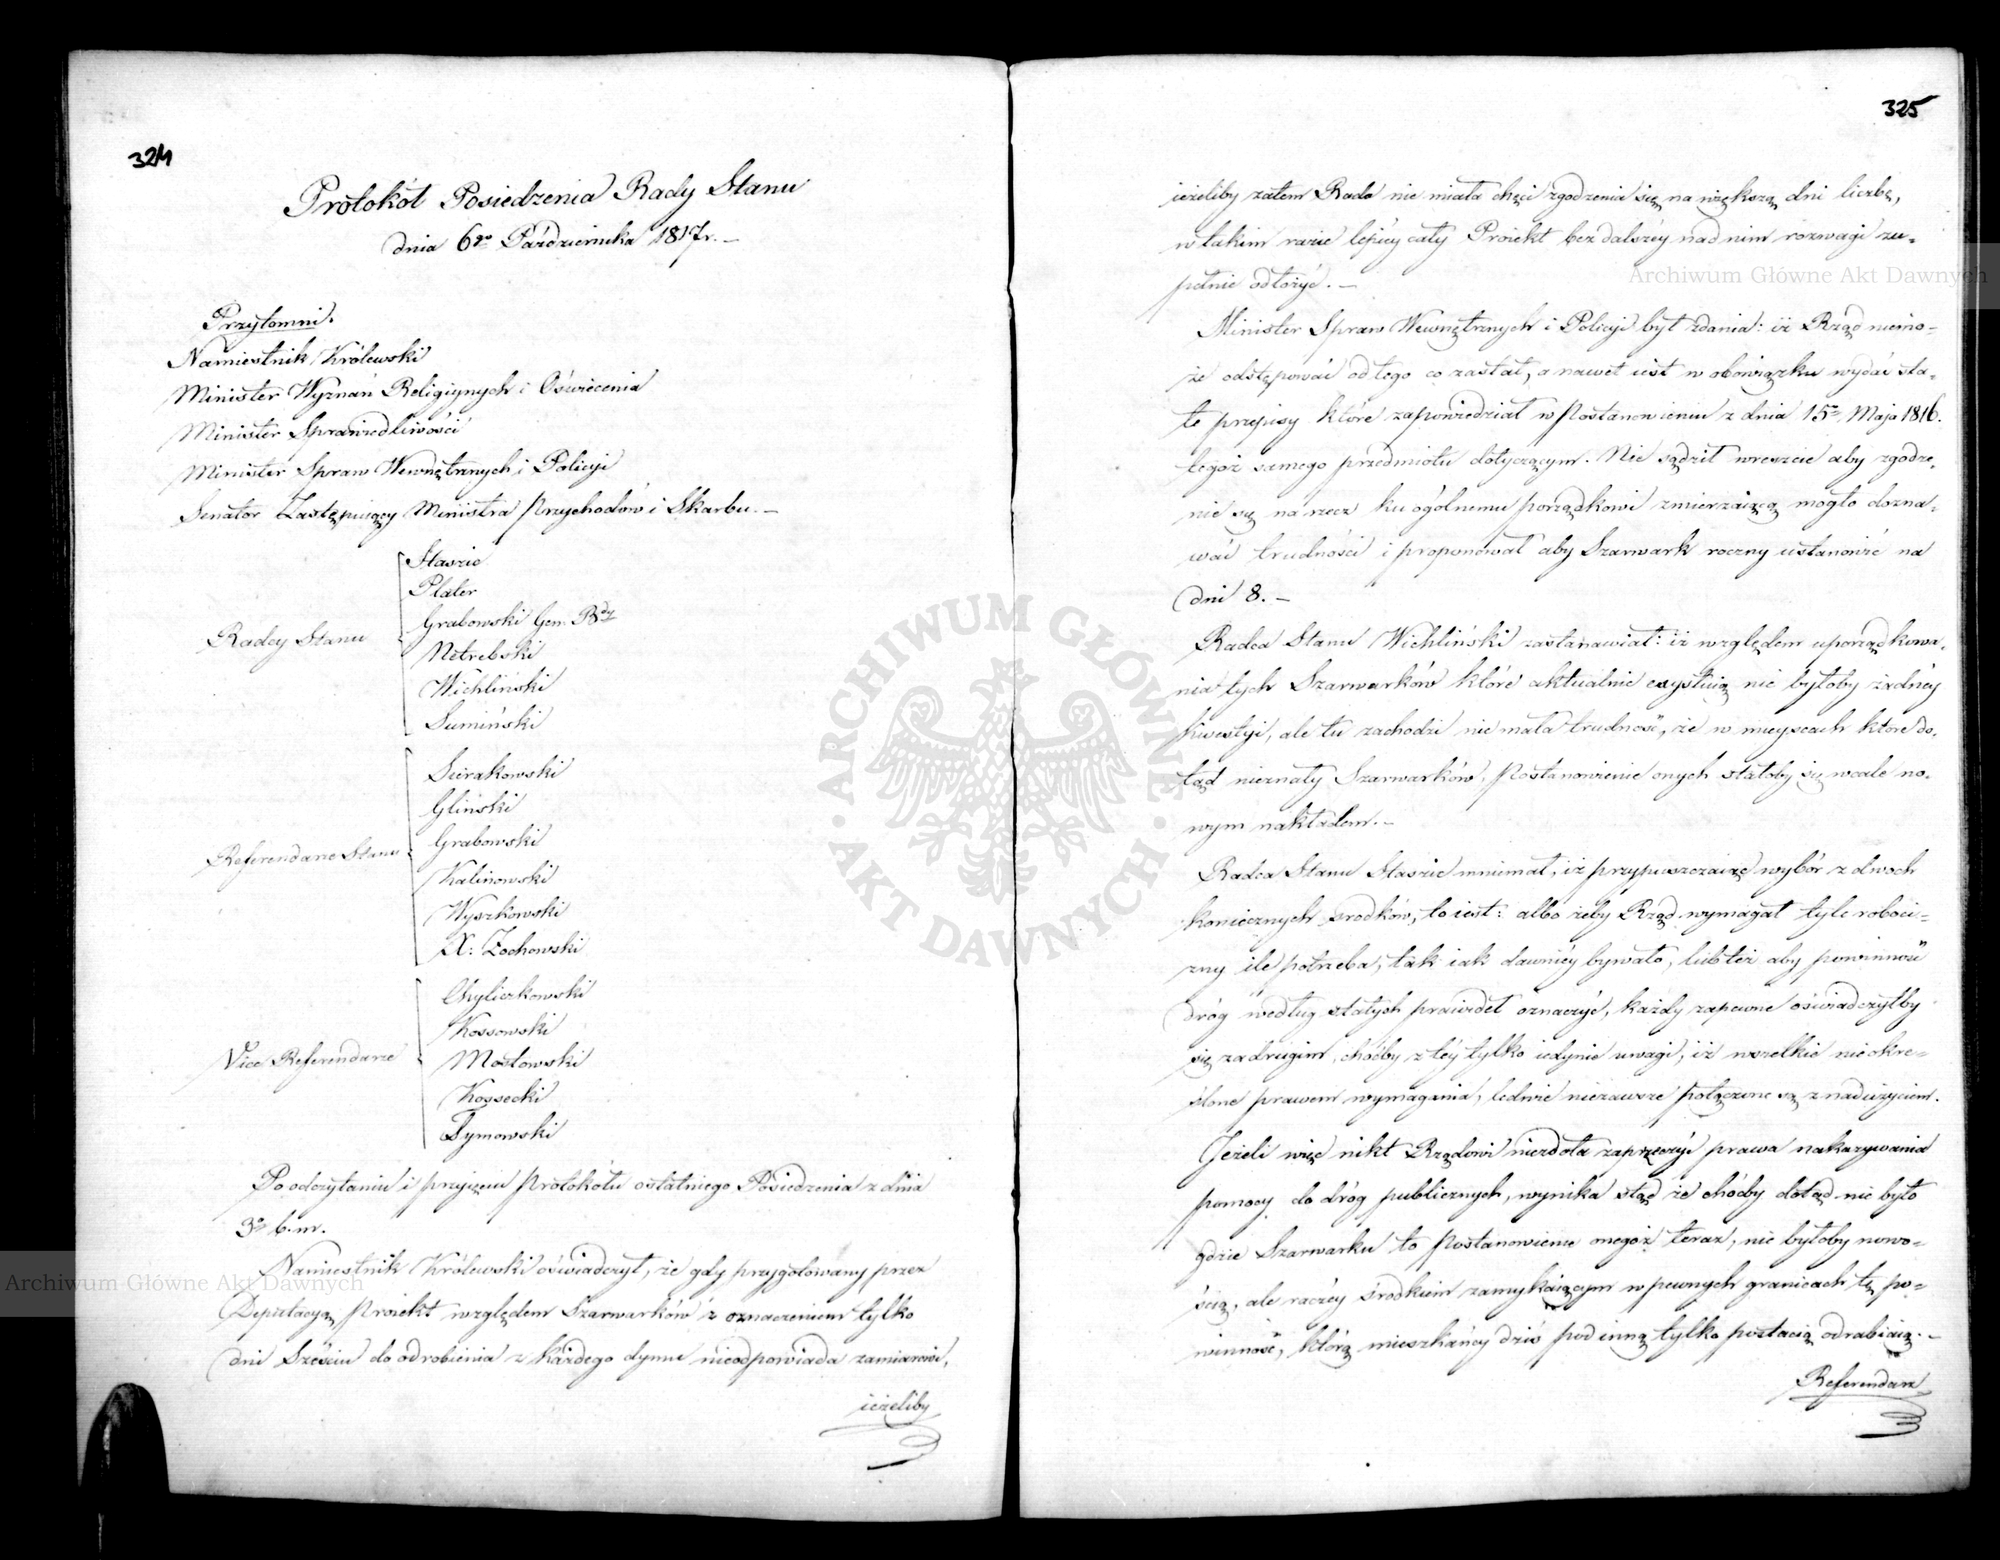 324
Protokół Posiedzenia Rady Stanu
dnia 6go Października 1817r. —
Przytomni.
Namiestnik Królewski
Minister Wyznań Religiynych i Oświecenia
Minister Sprawiedliwości
Minister Spraw Wewnętrznych i Policyi
Senator Zastępuiący Ministra Przychodów i Skarbu. —
Radcy Stanu
Staszic
Plater
Grabowski Gen: Bdy
Netrebski
Wichliński
Sumiński
Referendarze Stanu
Sierakowski
Gliński
Grabowski
Kalinowski
Wyszkowski
X: Żochowski
Vice Referendarze
Chyliczkowski
Kossowski
Mostowski
Kossecki
Tymowski
Po odczytaniu i przyięciu Protokołu ostatniego Posiedzenia z dnia
3o b. m.
Namiestnik Królewski oświadczył, że gdy przygotowany przez
Deputacyą Proiekt względem Szarwarków z oznaczeniem tylko
dni Sześciu do odrobienia z każdego dymu nieodpowiada zamiarowi,
ieżeliby
325
ieżeliby zatem Rada nie miała chęci zgodzenia się na większą dni liczbę,
w takim razie lepiéy cały Proiekt bez dalszey nad nim rozwagi zu-
pełnie odłożyć. —
Minister Spraw Wewnętrznych i Policyi był zdania: iż Rząd niemo-
że odstępować od tego co zastał, a nawet iest w obowiązku wydać sta-
łe przepisy które zapowiedział w Postanowieniu z dnia 15o Maja 1816.
tegoż samego przedmiotu dotyczącym. Nie sądził wreszcie aby zgodze-
nie się na rzecz ku ogólnemu porządkowi zmierzaiącą mogło dozna-
wać trudności i proponował aby Szarwark roczny ustanowić na
dni 8. —
Radca Stanu Wichliński zastanawiał: iż względem uporządkowa-
nia tych Szarwarków które aktualnie exystuią nie byłoby żadnéy
kwestyi, ale tu zachodzi nie mała trudność, że w mieyscach które do-
tąd nieznały Szarwarków, Postanowienie onych stałoby się wcale no-
wym nakładem. —
Radca Stanu Staszic mniemał, iż przypuszczaiąc wybór z dwóch
koniecznych środków, to iest: albo żeby Rząd wymagał tyle roboci-
zny ile potrzeba, tak iak dawniéy bywało, lub też aby powinność
dróg według stałych prawideł oznaczyć, każdy zapewne oświadczyłby
się za drugim, choćby z téy tylko iedynie uwagi, iż wszelkie nieokre-
ślone prawem wymagania, ledwie niezawsze połączone są z nadużyciem.
Jeżeli więc nikt Rządowi niezdoła zaprzeczyć prawa nakazywania
pomocy do dróg publicznych, wynika stąd że choćby dotąd nie było
gdzie Szarwarku to Postanowienie onegoż teraz, nie byłoby nowo-
ścią, ale raczéy środkiem zamykaiącym w pewnych granicach tę po-
winność, którą mieszkańcy dziś pod inną tylko postacią odrabiaią. —
Referendarz
Archiwum Główne Akt Dawnych
Archiwum Główne Akt Dawnych
ARCHIWUM GŁÓWNE
AKT DAWNYCH